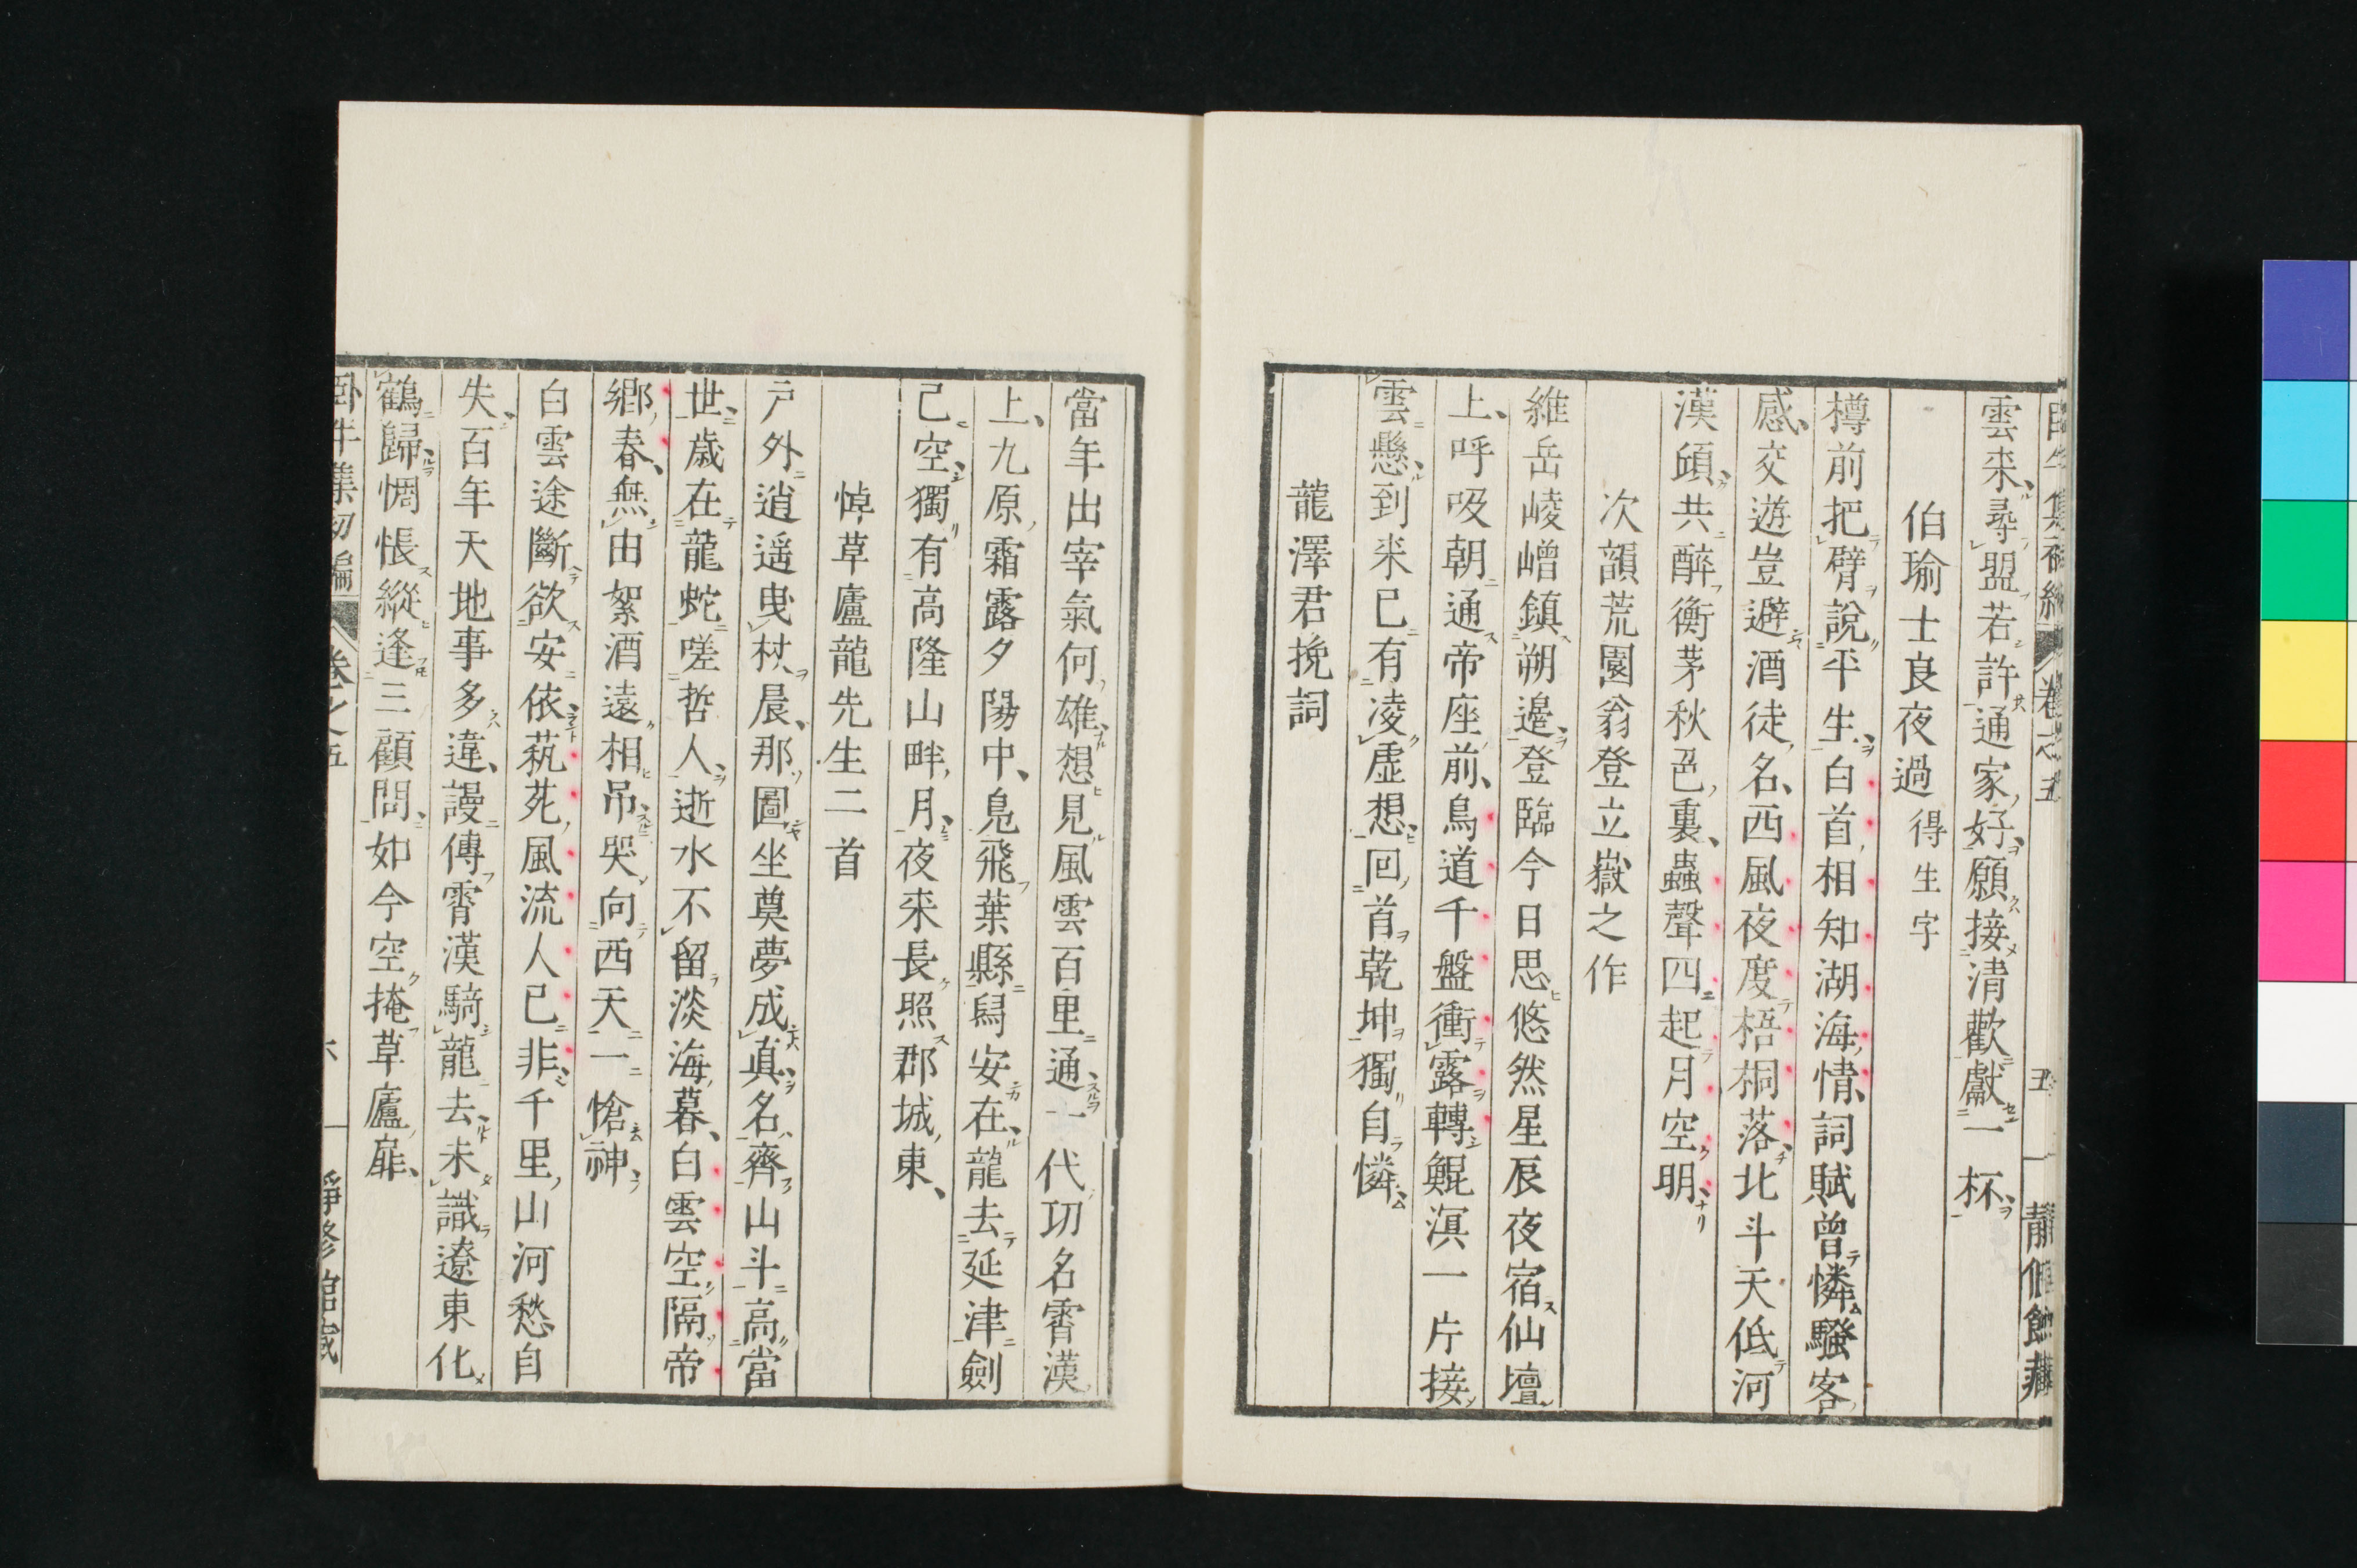 雲来尋盟若許通家好願接清歡獻一杯
伯瑜士良夜過得生字
樽前把臂說平生白首相知湖海情詞賦曾憐騷客
感交遊豈避酒徒名西風夜度梧桐落北斗天低河
漢傾共醉衡茅秋色裏蟲聲四起月空明
次韻荒園翁登立嶽之作
維岳崚嶒鎮朔邊登臨今日思悠然星辰夜宿仙壇
上呼吸朝通帝座前鳥道千盤衝露轉鯤溟一片接
雲懸到来已有凌虛想回首乾坤獨自憐
龍澤君挽詞
當年出宰氣何雄想見風雲百里通一代功名霄漢
上九原霜露夕陽中鳧飛葉縣舄安在龍去延津劍
已空獨有高隆山畔月夜来長照郡城東
悼草廬龍先生二首
戶外逍遥曳杖晨那圖坐奠夢成真名齊山斗高當
世歲在龍蛇嗟哲人逝水不留淡海暮白雲空隔帝
鄉春無由絮酒遠相吊哭向西天一愴神
白雲途斷欲安依蓺苑風流人已非千里山河愁自
失百年天地事多違謾傳霄漢騎龍去未識遼東化
鶴歸惆悵縱逢三顧問如今空掩草廬扉
卷之五